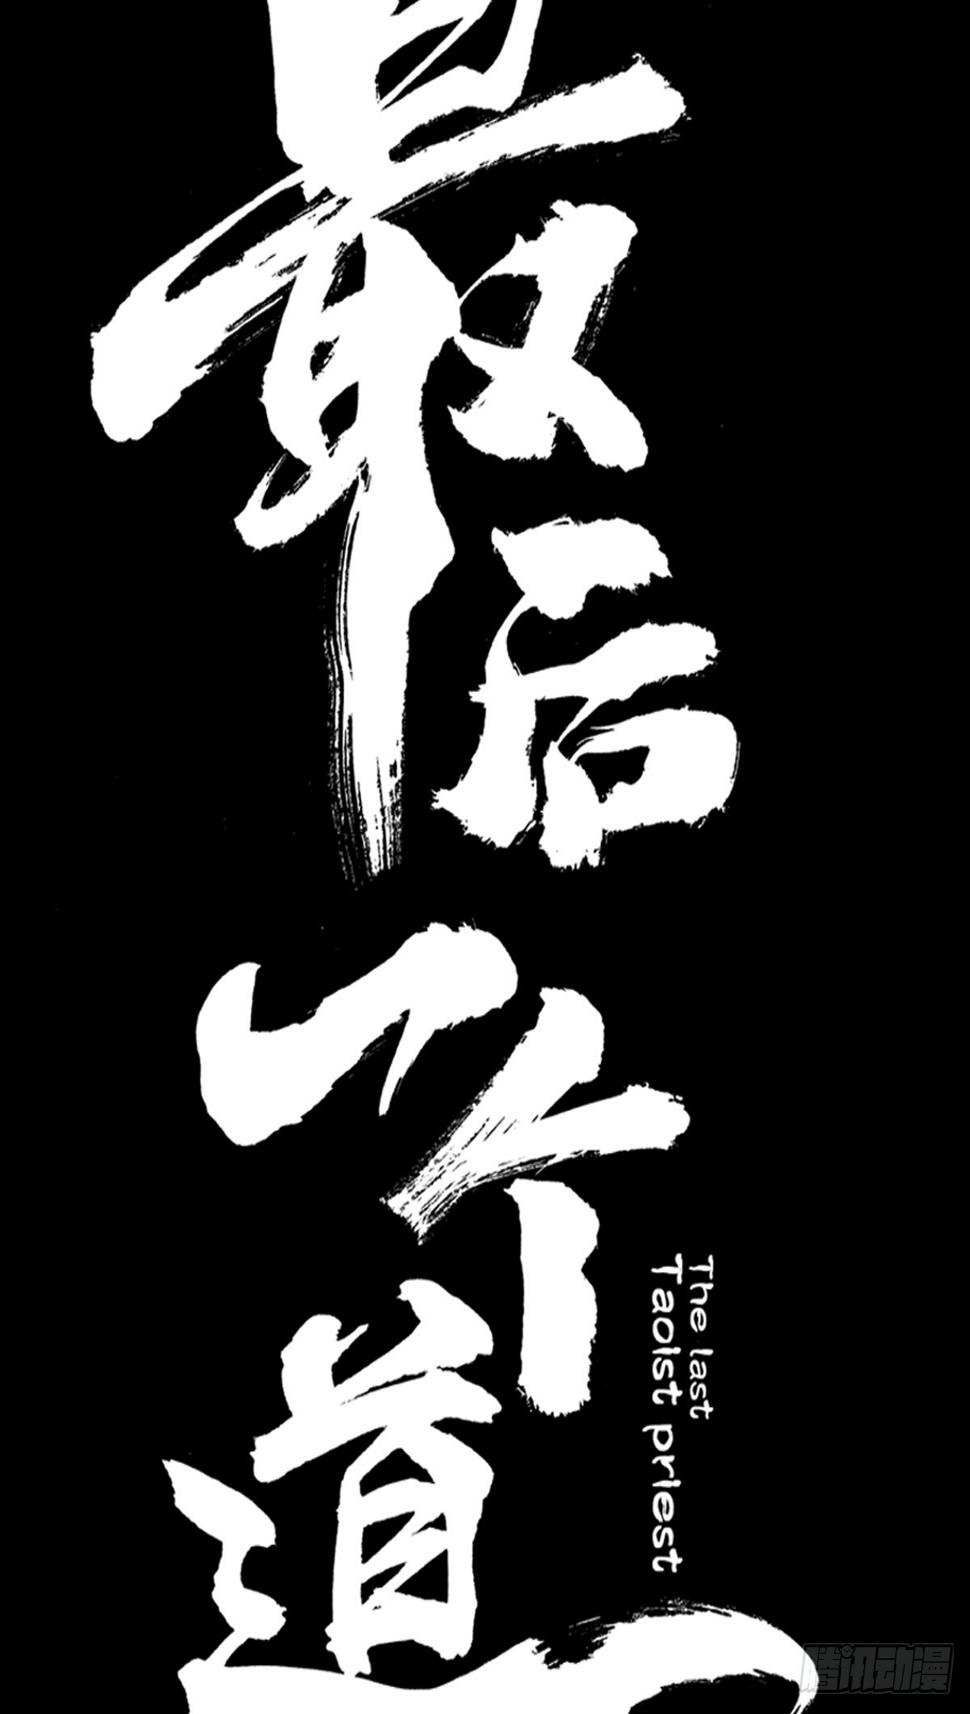 最后一个道
The last
Taoist priest
腾讯动漫